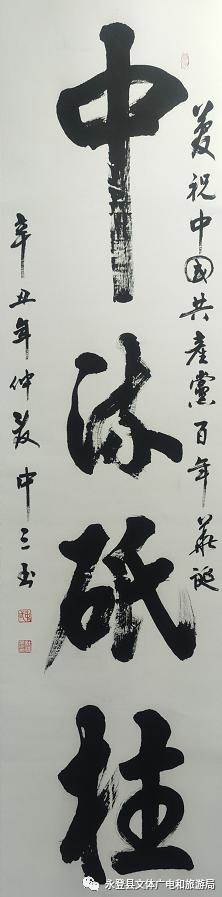 庆祝中國共產黨百年華誕
中流砥柱
辛丑年仲夏中三玉
永登县文体广电和旅游局